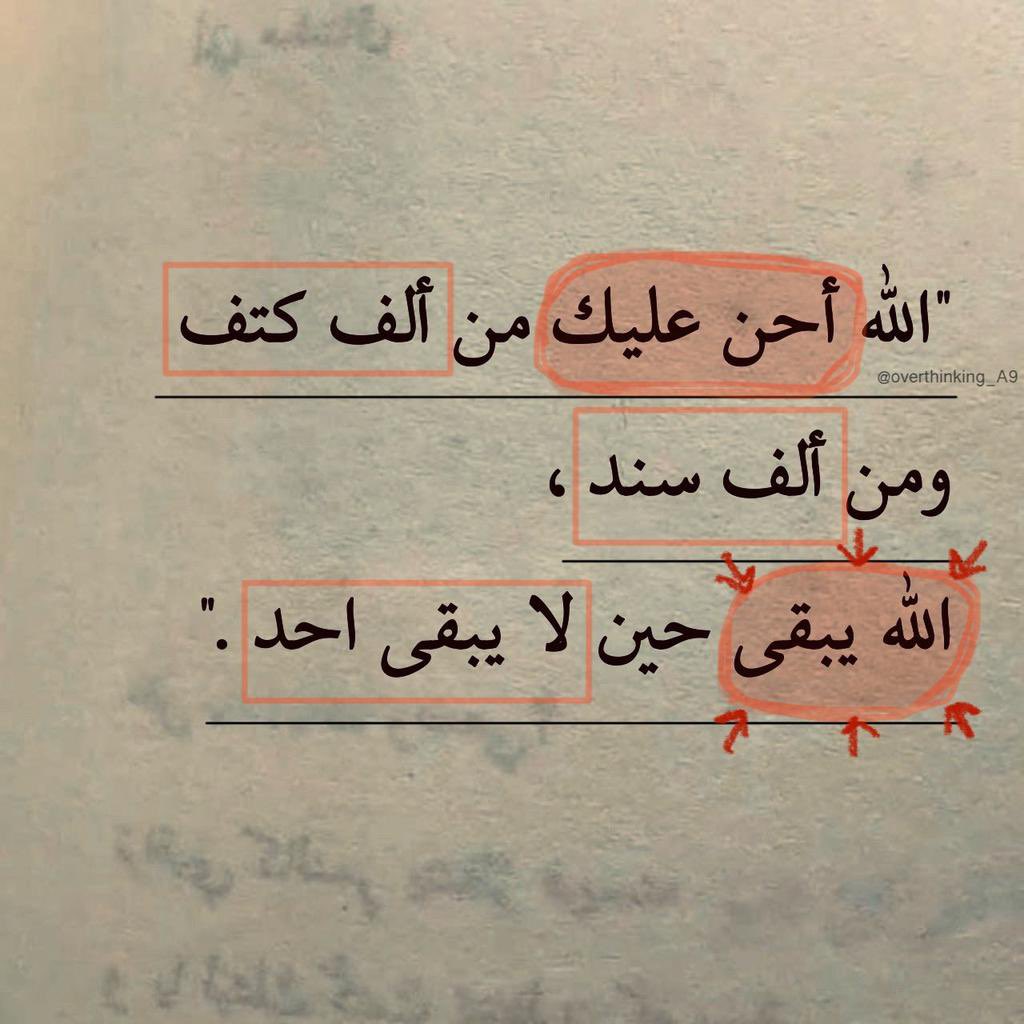 "الله أحن عليك من ألف كتف
@overthinking_A9
ومن ألف سند ،
الله يبقى حين لا يبقى احد ."